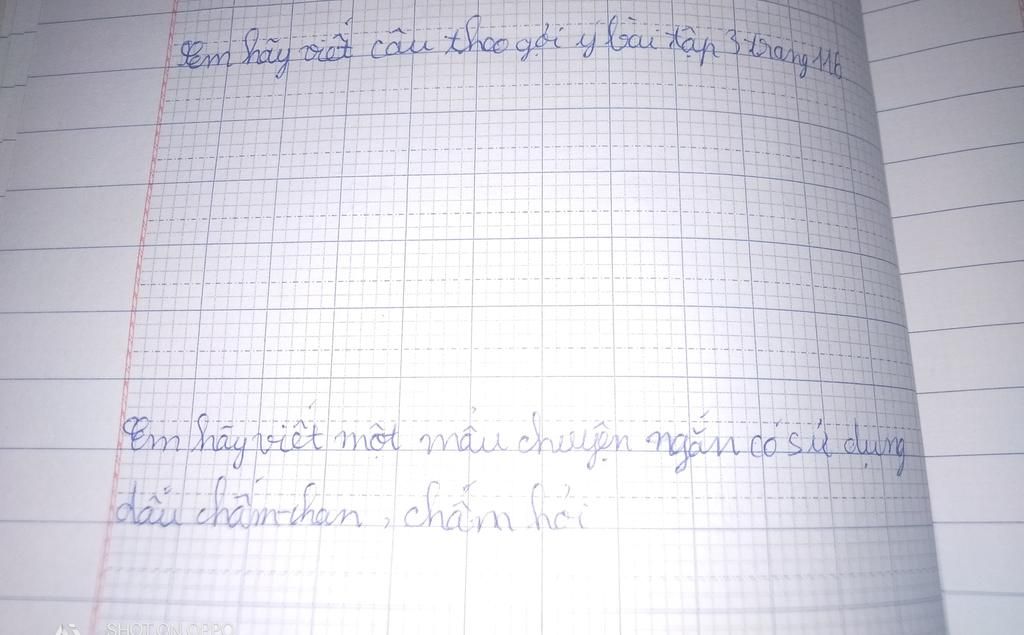 Em hãy viết câu theo gợi ý bài tập 3 trang 116
Em hãy viết một mẩu chuyện ngắn có sử dụng
dấu chấm than, chấm hỏi
SHOT ON OPPO